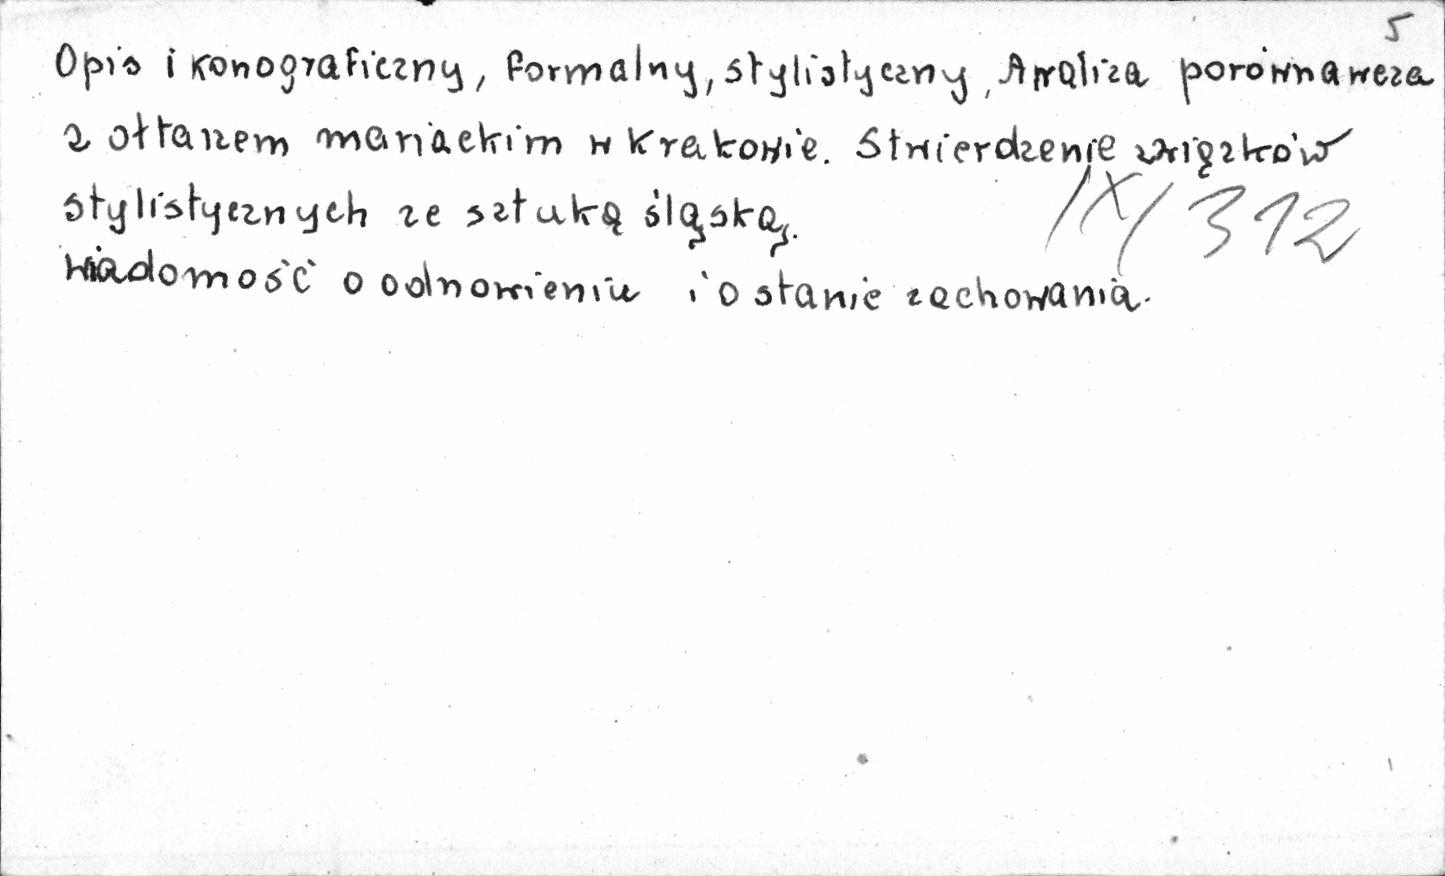 5
Opis ikonograficzny, formalny, stylistyczny, Analiza porównawcza
z ołtarzem mariackim w Krakowie. Stwierdzenie związków
stylistycznych ze sztuką śląską.
IX/312
Wiadomość o odnowieniu i o stanie zachowania.